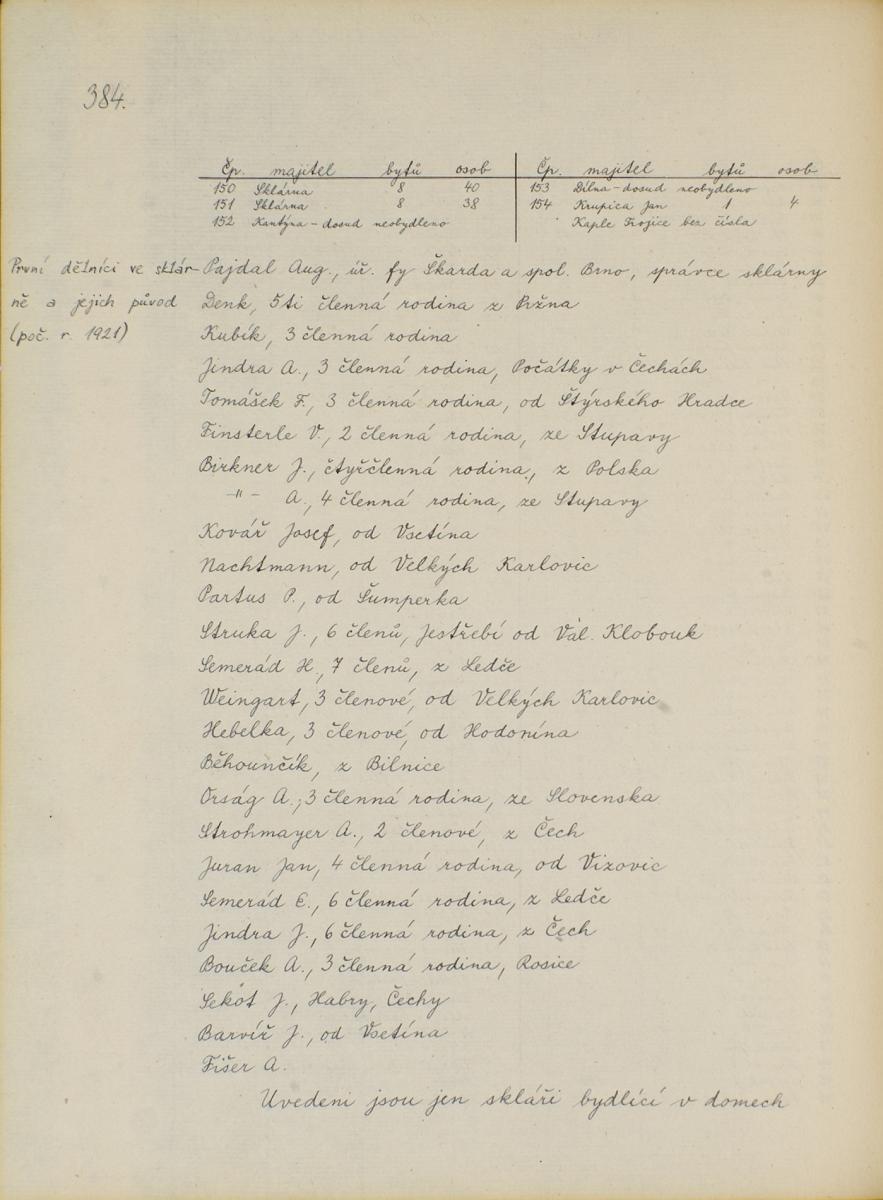 384.
Čp. majitel bytů osob
150 Sklárna 8 40
151 Sklárna 8 38
152 Kantýna - dosud neobydleno
Čp. majitel bytů osob
153 Dílna - dosud neobydleno
154 Krupica Jan 1 4
Kaple Trojice bez čísla
První dělníci ve sklár-
ně a jejich původ
(poč. r. 1921)
Pajdal Aug., úř. fy Škarda a spol. Brno, správce sklárny
Denk, 5ti členná rodina z Pržna
Kubík, 3 členná rodina
Jindra A., 3 členná rodina, Počátky v Čechách
Tomášek F., 3 členná rodina, od Štýrského Hradce
Finsterle V., 2 členná rodina, ze Stupavy
Birkner J., čtyřčlenná rodina, z Polska
-"- A., 4 členná rodina, ze Stupavy
Kovář Josef, od Vsetína
Nachtmann, od Velkých Karlovic
Partus P., od Šumperka
Struka J., 6 členů, Jestřebí od Val. Klobouk
Semerád H., 7 členů, z Ledče
Weingart, 3 členové, od Velkých Karlovic
Hebelka, 3 členové, od Hodonína
Běhounčík, z Bilnice
Orság A., 3 členná rodina, ze Slovenska
Strohmayer A., 2 členové, z Čech
Juran Jan, 4 členná rodina, od Vizovic
Semerád E., 6 členná rodina, z Ledče
Jindra J., 6 členná rodina, z Čech
Bouček A., 3 členná rodina, Rosice
Sekot J., Habry, Čechy
Barvíř J., od Vsetína
Fišer A.
Uvedeni jsou jen skláři bydlící v domech